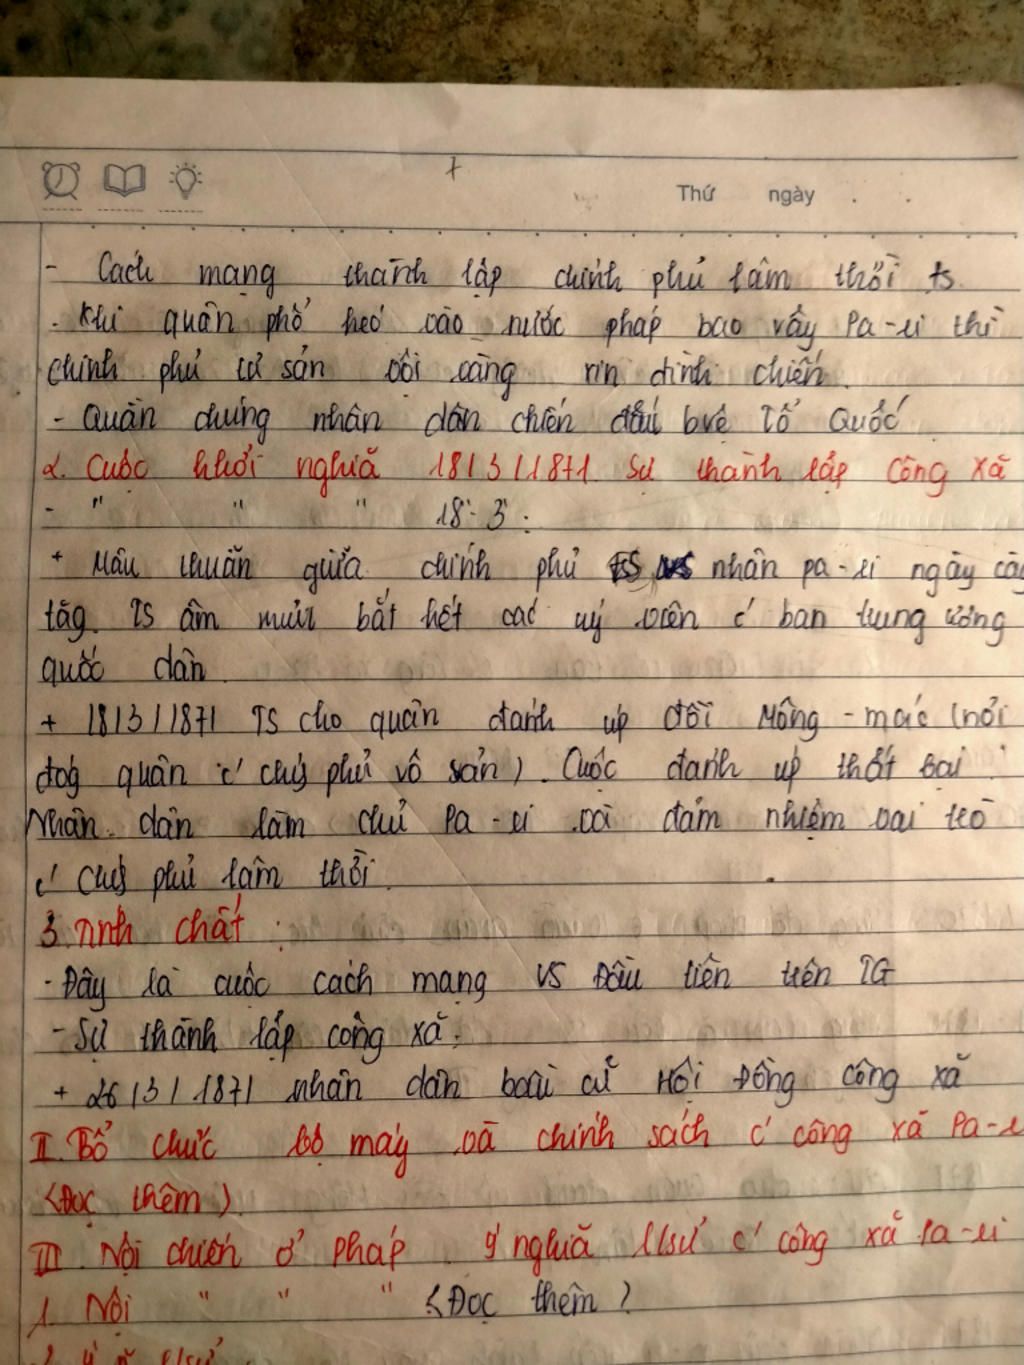 Thứ ngày
- Cách mạng thành lập chính phủ lâm thời ts
- Khi quân phổ kéo vào nước pháp bao vây Pa-ri thì
chính phủ tư sản vội vàng xin đình chiến.
- Quần chúng nhân dân chiến đấu bvệ Tổ Quốc
2. Cuộc khởi nghĩa 18/3/1871. Sự thành lập Công xã
- " " " 18-3:
+ Mâu thuẫn giữa chính phủ TS vs nhân pa-ri ngày càg
tăg. TS âm mưu bắt hết các uỷ viên c' ban trung ương
quốc dân.
+ 18/3/1871 TS cho quân đánh úp đồi Mông-mác (nơi
đóg quân c' chíh phủ vô sản). Cuộc đánh úp thất bại.
Nhân dân làm chủ Pa-ri và đảm nhiệm vai trò
c' chíh phủ lâm thời.
3. Tính chất:
- Đây là cuộc cách mạng VS Đầu tiên trên TG
- Sự thành lập công xã:
+ 26/3/1871 nhân dân bầu cử Hội Đồng công xã
II. Tổ chức bộ máy và chính sách c' công xã Pa-r
<Đọc thêm>
III. Nội chiến ở Pháp. Ý nghĩa l/sử c' công xã Pa-ri
1. Nội " " " <Đọc thêm>